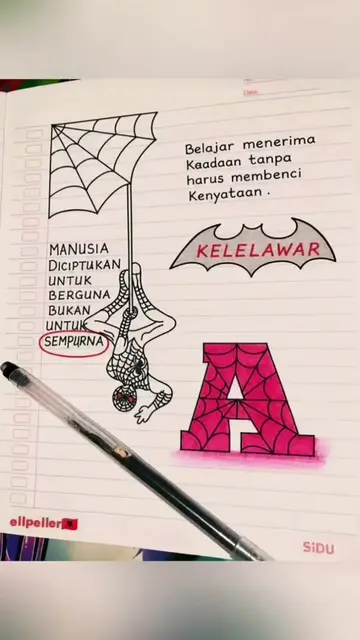 Belajar menerima
Kaadaan tanpa
harus membenci
Kenyataan.
KELELAWAR
MANUSIA
DICIPTUKAN
UNTUK
BERGUNA
BUKAN
UNTUK
SEMPURNA
A
ellpeller
SiDU